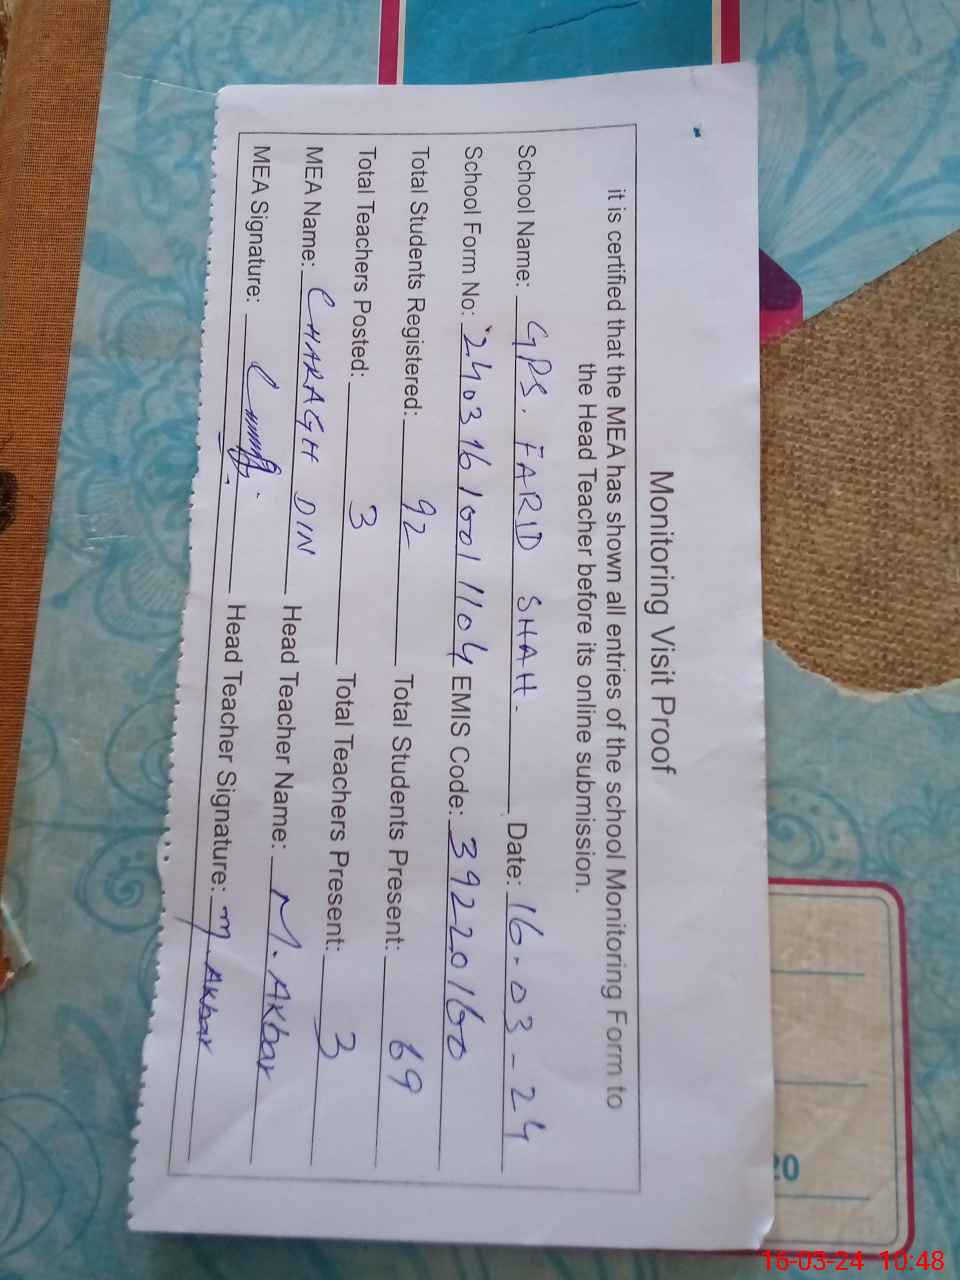 Monitoring Visit Proof
it is certified that the MEA has shown all entries of the school Monitoring Form to
the Head Teacher before its online submission.
School Name: GPS. FARID SHAH. Date: 16-03-24
School Form No: 24031610011104 EMIS Code: 39220160
Total Students Registered: 92 Total Students Present: 69
Total Teachers Posted: 3 Total Teachers Present: 3
MEA Name: CHARAGH DIN Head Teacher Name: M. Akbar
MEA Signature: Head Teacher Signature: M. Akbar
20
16-03-24 10:48